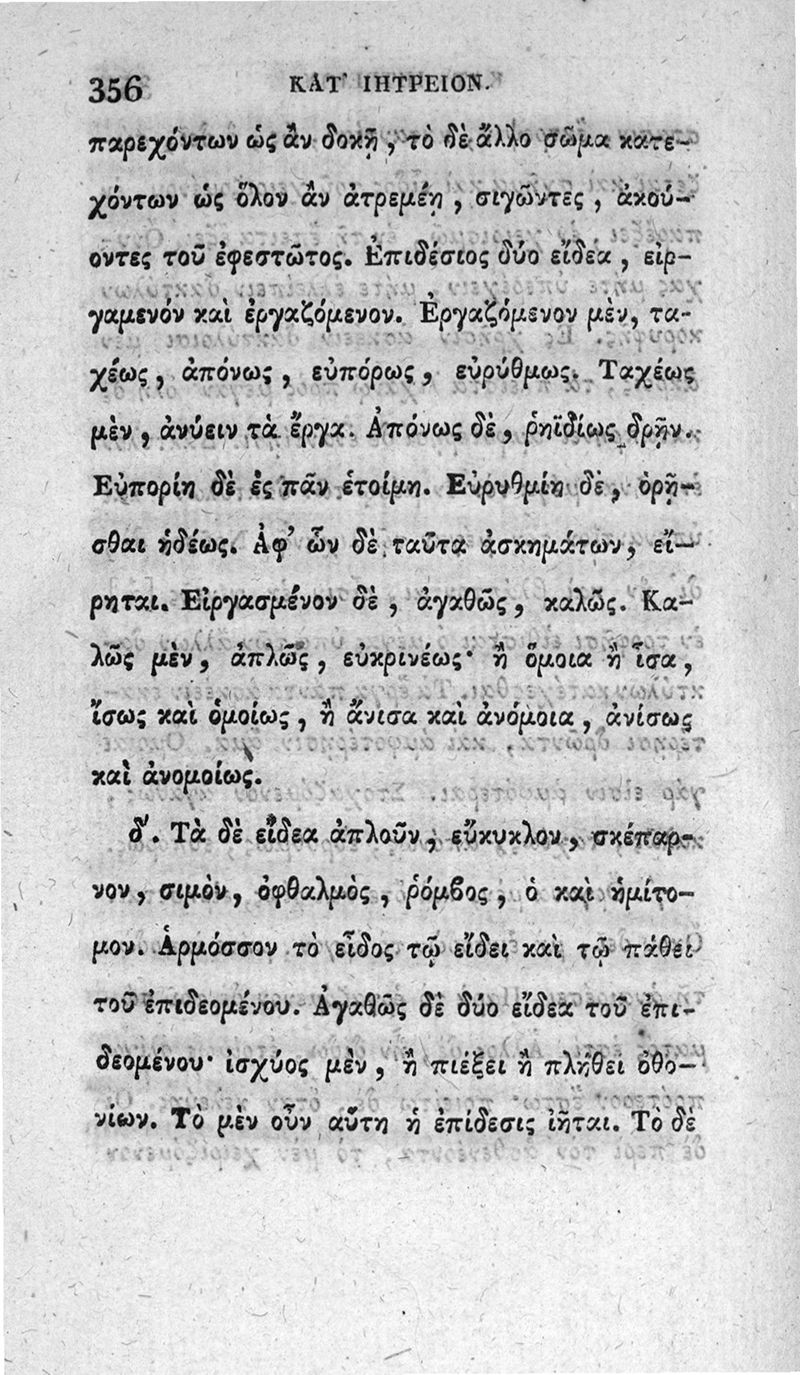 356 ΚΑΤ' ΙΗΤΡΕΙΟΝ.
παρεχόντων ὡς ἂν δοκῇ, τὸ δὲ ἄλλο σῶμα κατε-
χόντων ὡς ὅλον ἂν ἀτρεμέῃ, σιγῶντες, ἀκού-
οντες τοῦ ἐφεστῶτος. Ἐπιδέσιος δύο εἴδεα, εἰρ-
γαμενόν καὶ ἐργαζόμενον. Ἐργαζόμενον μὲν, τα-
χέως, ἀπόνως, εὐπόρως, εὐρύθμως. Ταχέως
μὲν, ἀνύειν τὰ ἔργα. Ἀπόνως δὲ, ῥηϊδίως δρῇν.
Εὐπορίη δὲ ἐς πᾶν ἑτοίμη. Εὐρυθμίη δὲ, ὁρῆ-
σθαι ἡδέως. Ἀφ' ὧν δὲ ταῦτα ἀσκημάτων, εἴ-
ρηται. Εἰργασμένον δὲ, ἀγαθῶς, καλῶς. Κα-
λῶς μὲν, ἁπλῶς, εὐκρινέως· ἢ ὅμοια ἢ ἶσα,
ἴσως καὶ ὁμοίως, ἢ ἄνισα καὶ ἀνόμοια, ἀνίσως
καὶ ἀνομοίως.
δ'. Τὰ δὲ εἴδεα ἁπλοῦν, εὔκυκλον, σκέπαρ-
νον, σιμὸν, ὀφθαλμὸς, ῥόμϐος, ὁ καὶ ἡμίτο-
μον. Ἁρμόσσον τὸ εἶδος τῷ εἴδει καὶ τῷ πάθει
τοῦ ἐπιδεομένου. Ἀγαθῶς δὲ δύο εἴδεα τοῦ ἐπι-
δεομένου· ἰσχύος μὲν, ἢ πιέξει ἢ πλήθει ὀθο-
νίων. Τὸ μὲν οὖν αὕτη ἡ ἐπίδεσις ἰῆται. Τὸ δὲ